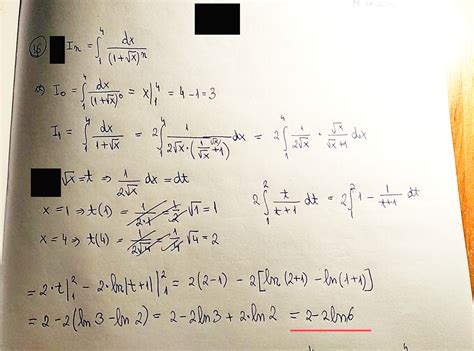 16 Iₙ = ∫₁⁴ dx/(1+√x)ⁿ
a) I₀ = ∫₁⁴ dx/(1+√x)⁰ = x|₁⁴ = 4-1 = 3
I₁ = ∫₁⁴ dx/(1+√x) = 2∫₁⁴ 1/(2√x·(1/√x+1)) dx = 2∫₁⁴ 1/(2√x) · √x/(√x+1) dx
√x = t ⇒ 1/(2√x) dx = dt
x = 1 ⇒ t(1) = 1/(2·1) = 1/2 √1 = 1
2∫₁² t/(t+1) dt = 2∫₁² 1 - 1/(t+1) dt
x = 4 ⇒ t(4) = 1/(2√4) = 1/4 √4 = 2
= 2·t|₁² - 2·ln|t+1||₁² = 2(2-1) - 2[ln(2+1) - ln(1+1)]
= 2-2(ln3-ln2) = 2-2ln3+2·ln2 = 2-2ln6